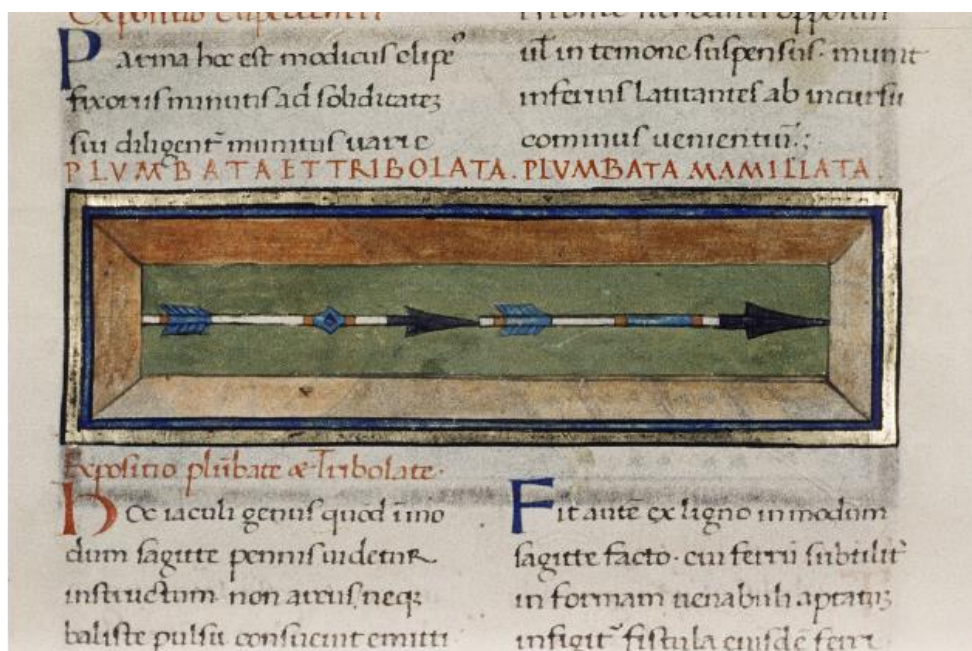 Expositio
Parma hoc est modicus clipe⁹
fixoriis minutis ad soliditatē
sui diligent̄ munitus uarie
ul in temone suspensus. munit
inferius latitantes ab incursu
cominus uenientiū.;
PLVMBATA ET TRIBOLATA. PLVMBATA MAMILLATA.
Expositio plūbate & Tribolate.
Hoc iaculi genus quod ī mo
dum sagitte pennis uidetur
instructum. non arcus, neq;
baliste pulsu consueuit emitti
Fit autē ex ligno in modum
sagitte facto. cui ferrū subtilit̄
in formam uenabuli aptatū
infigit̄ fistula eiusdē ferri